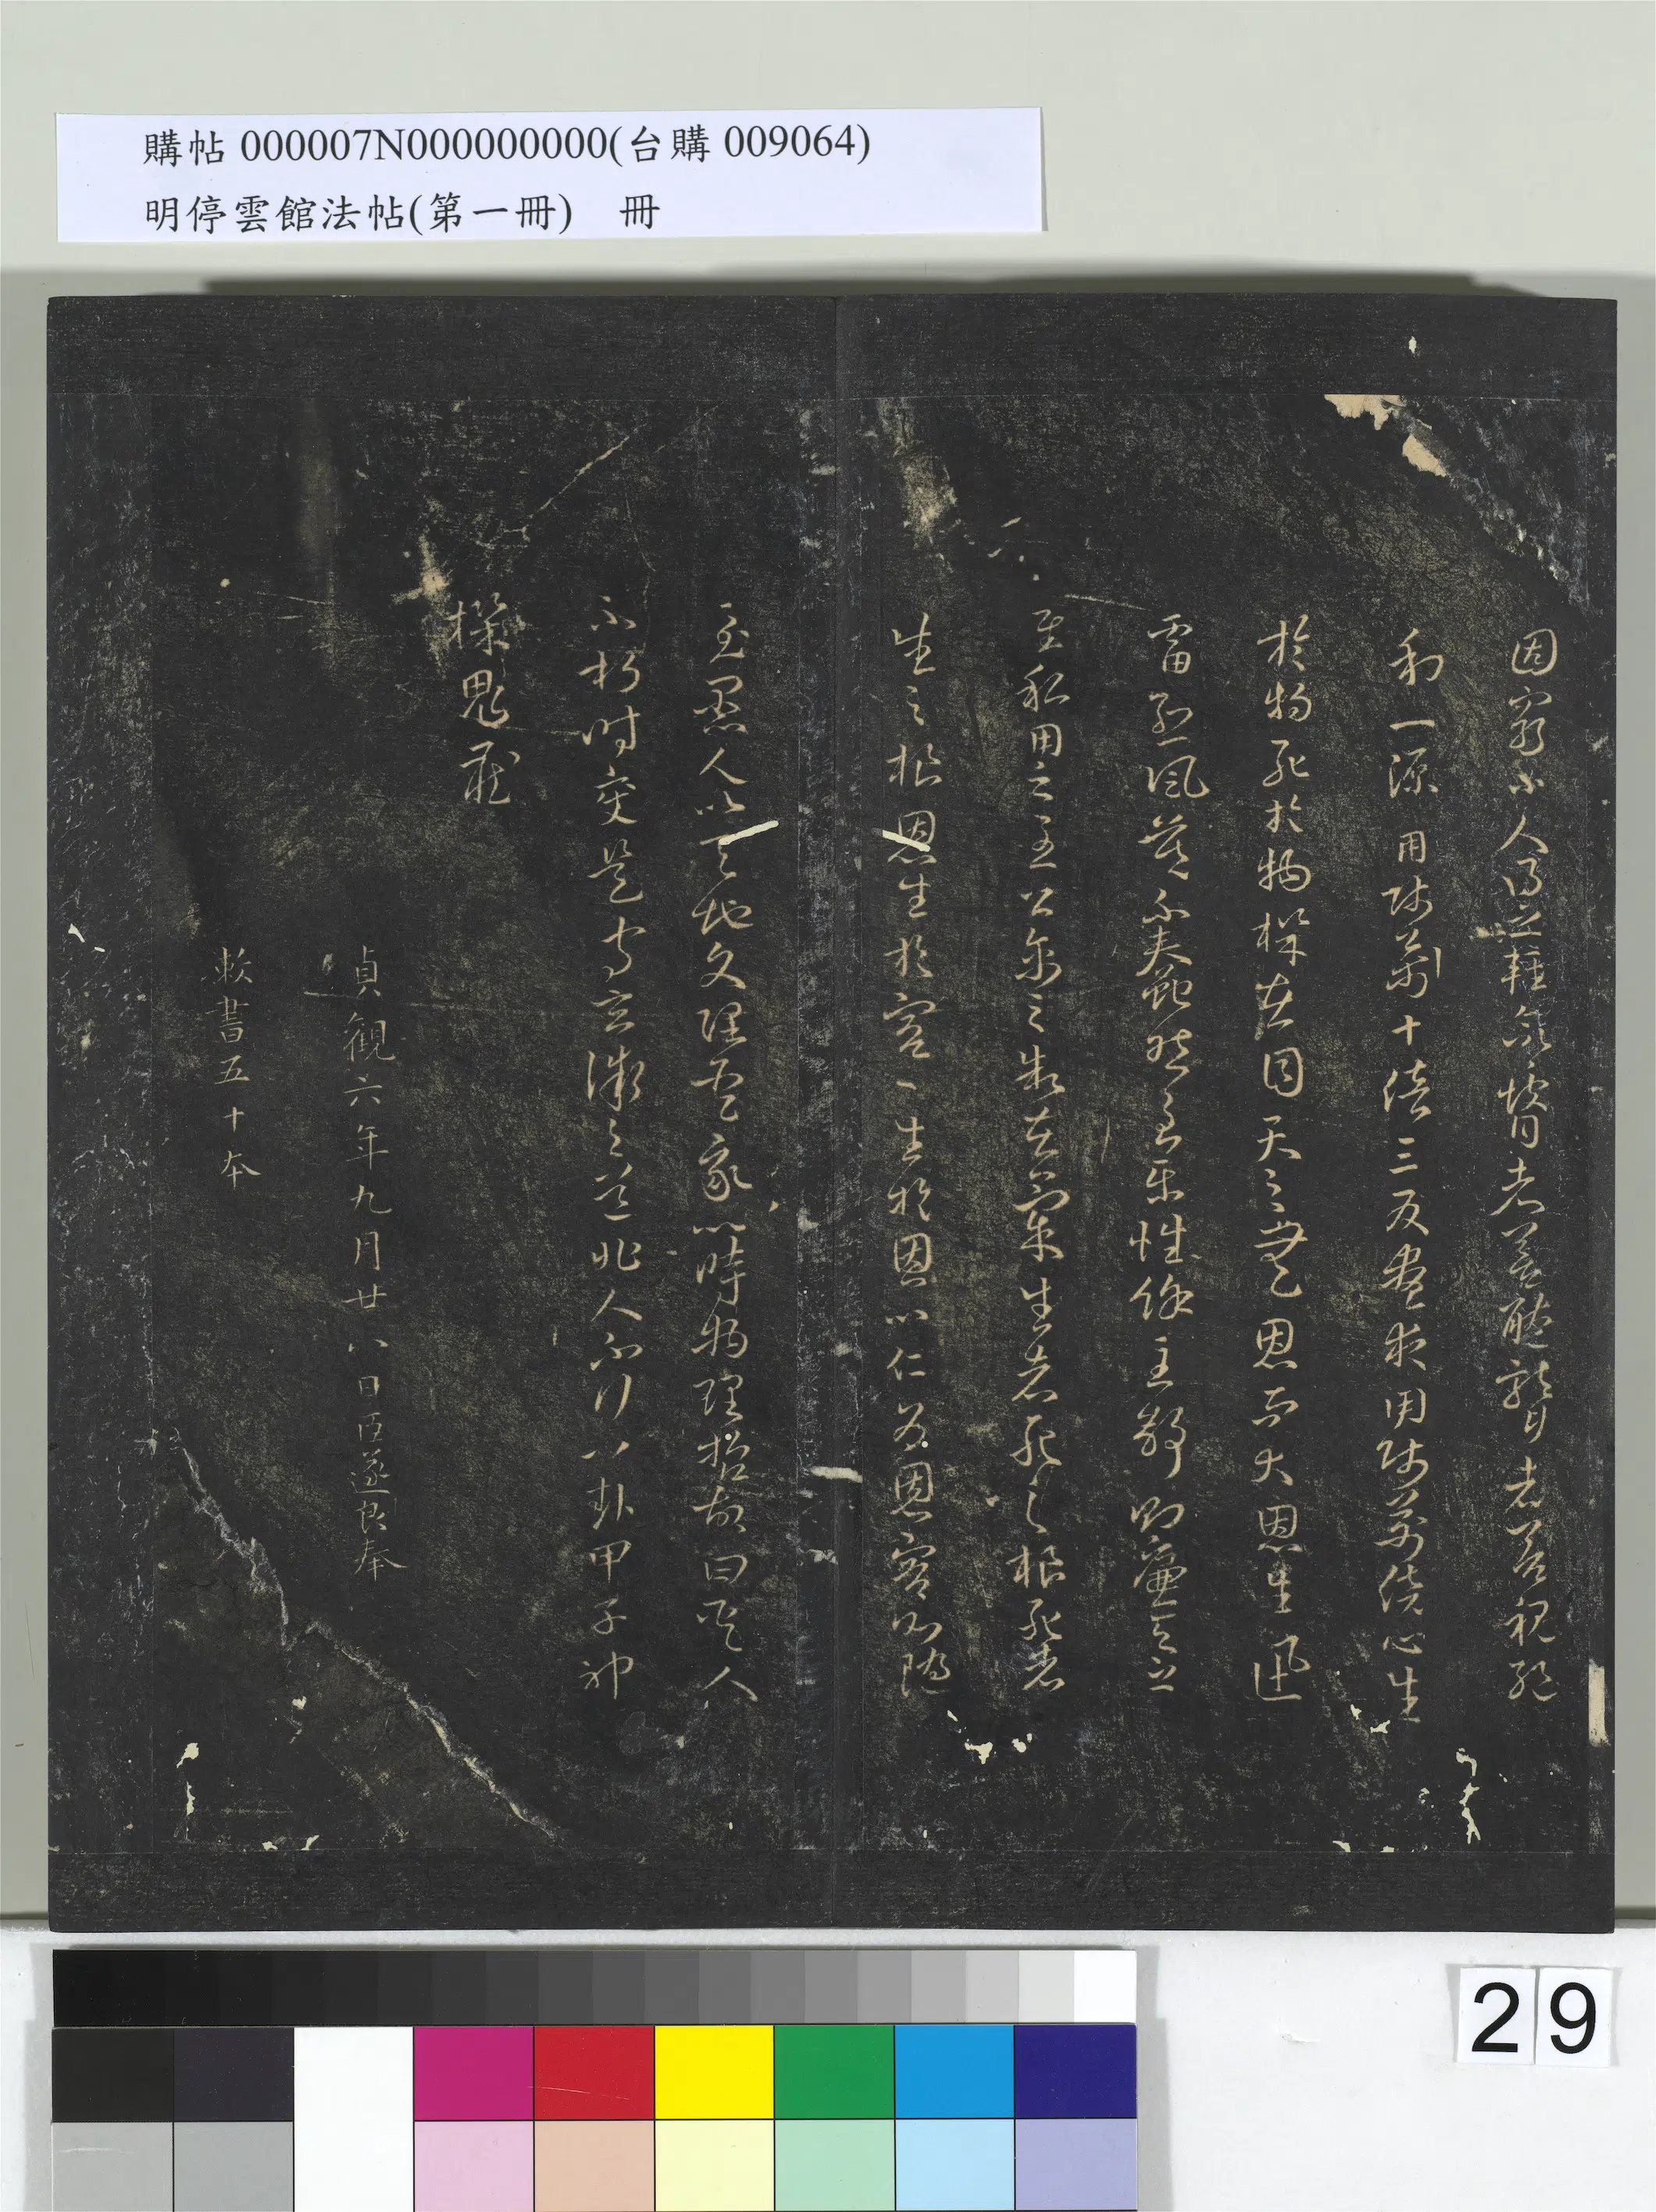 購帖 000007N000000000(台購 009064)
明停雲館法帖(第一冊) 冊
固窮小人得之輕命瞽者善聽聾者善視絕
利一源用師萬十倍三反晝夜用師萬倍心生
於物死於物機在目天之無恩而大恩生迅
雷烈風莫不夫蠢然至樂性餘至靜則廉天之
至私用之至公禽之制在氣生者死之根死者
生之根恩生於害〻生於恩以仁為恩害則隨
至愚人以天地文理聖我以時物理哲故曰聖人
不朽時變是守玄微之道非人不行八卦甲子神
機鬼藏
貞觀六年九月廿八日臣遂良奉
敕書五十本
29